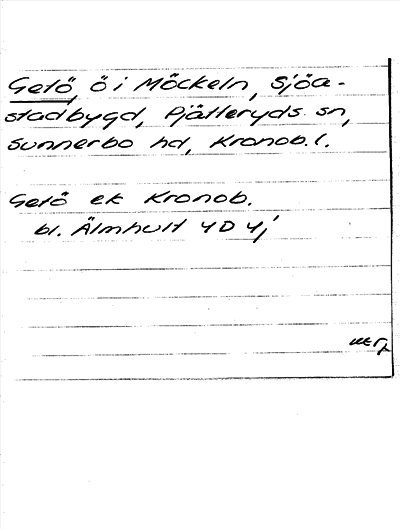 Getö, ö i Möckeln, Sjöa-
stadbygd, Pjätteryds sn,
Sunnerbo hd, Kronob. l.
Getö ek Kronob.
bl. Älmhult 4D 4j